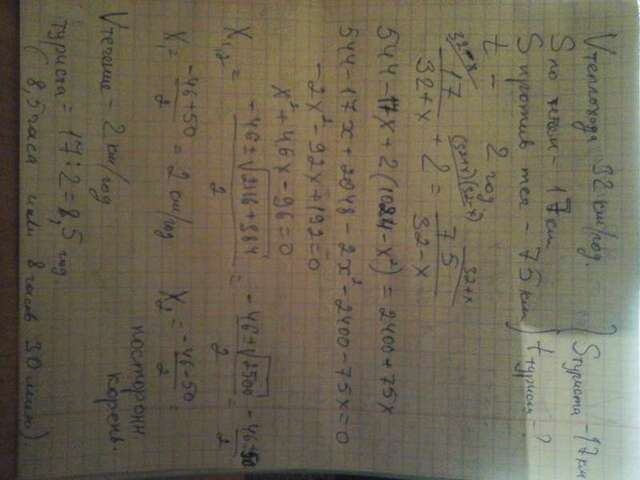 Vтеплохода 32 км/год.
S по течен - 17 км
S против теч - 75 км
t - 2 год
Sтуриста - 17 км
tтуриста - ?
32-x (32+x)(32-x) 32+x
17/(32+x) + 2 = 75/(32-x)
544-17x+2(1024-x²)=2400+75x
544-17x+2048-2x²-2400-75x=0
-2x²-92x+192=0
x²+46x-96=0
X₁,₂= (-46±√(2116+384))/2 = (-46±√2500)/2 = (-46±50)/2
X₁= (-46+50)/2 = 2 км/год X₂= (-46-50)/2 =
посторонн.
корень.
Vтечение - 2 км/год
туриста = 17:2=8,5 год.
(8,5 часа или 8 часов 30 мин).